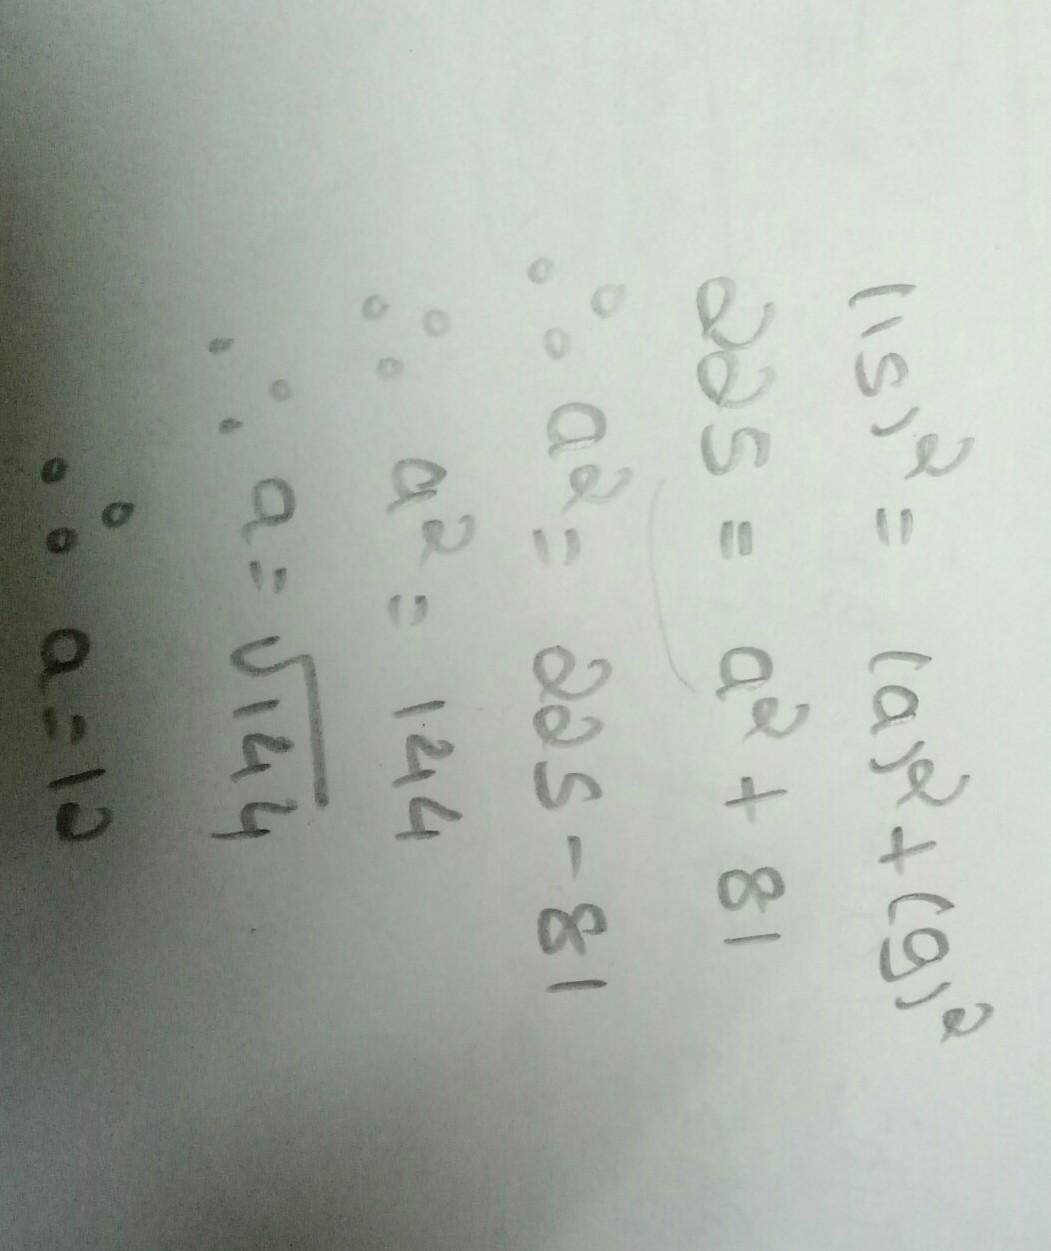 (15)² = (a)² + (9)²
225 = a² + 81
∴ a² = 225 - 81
∴ a² = 144
∴ a = √144
∴ a = 12